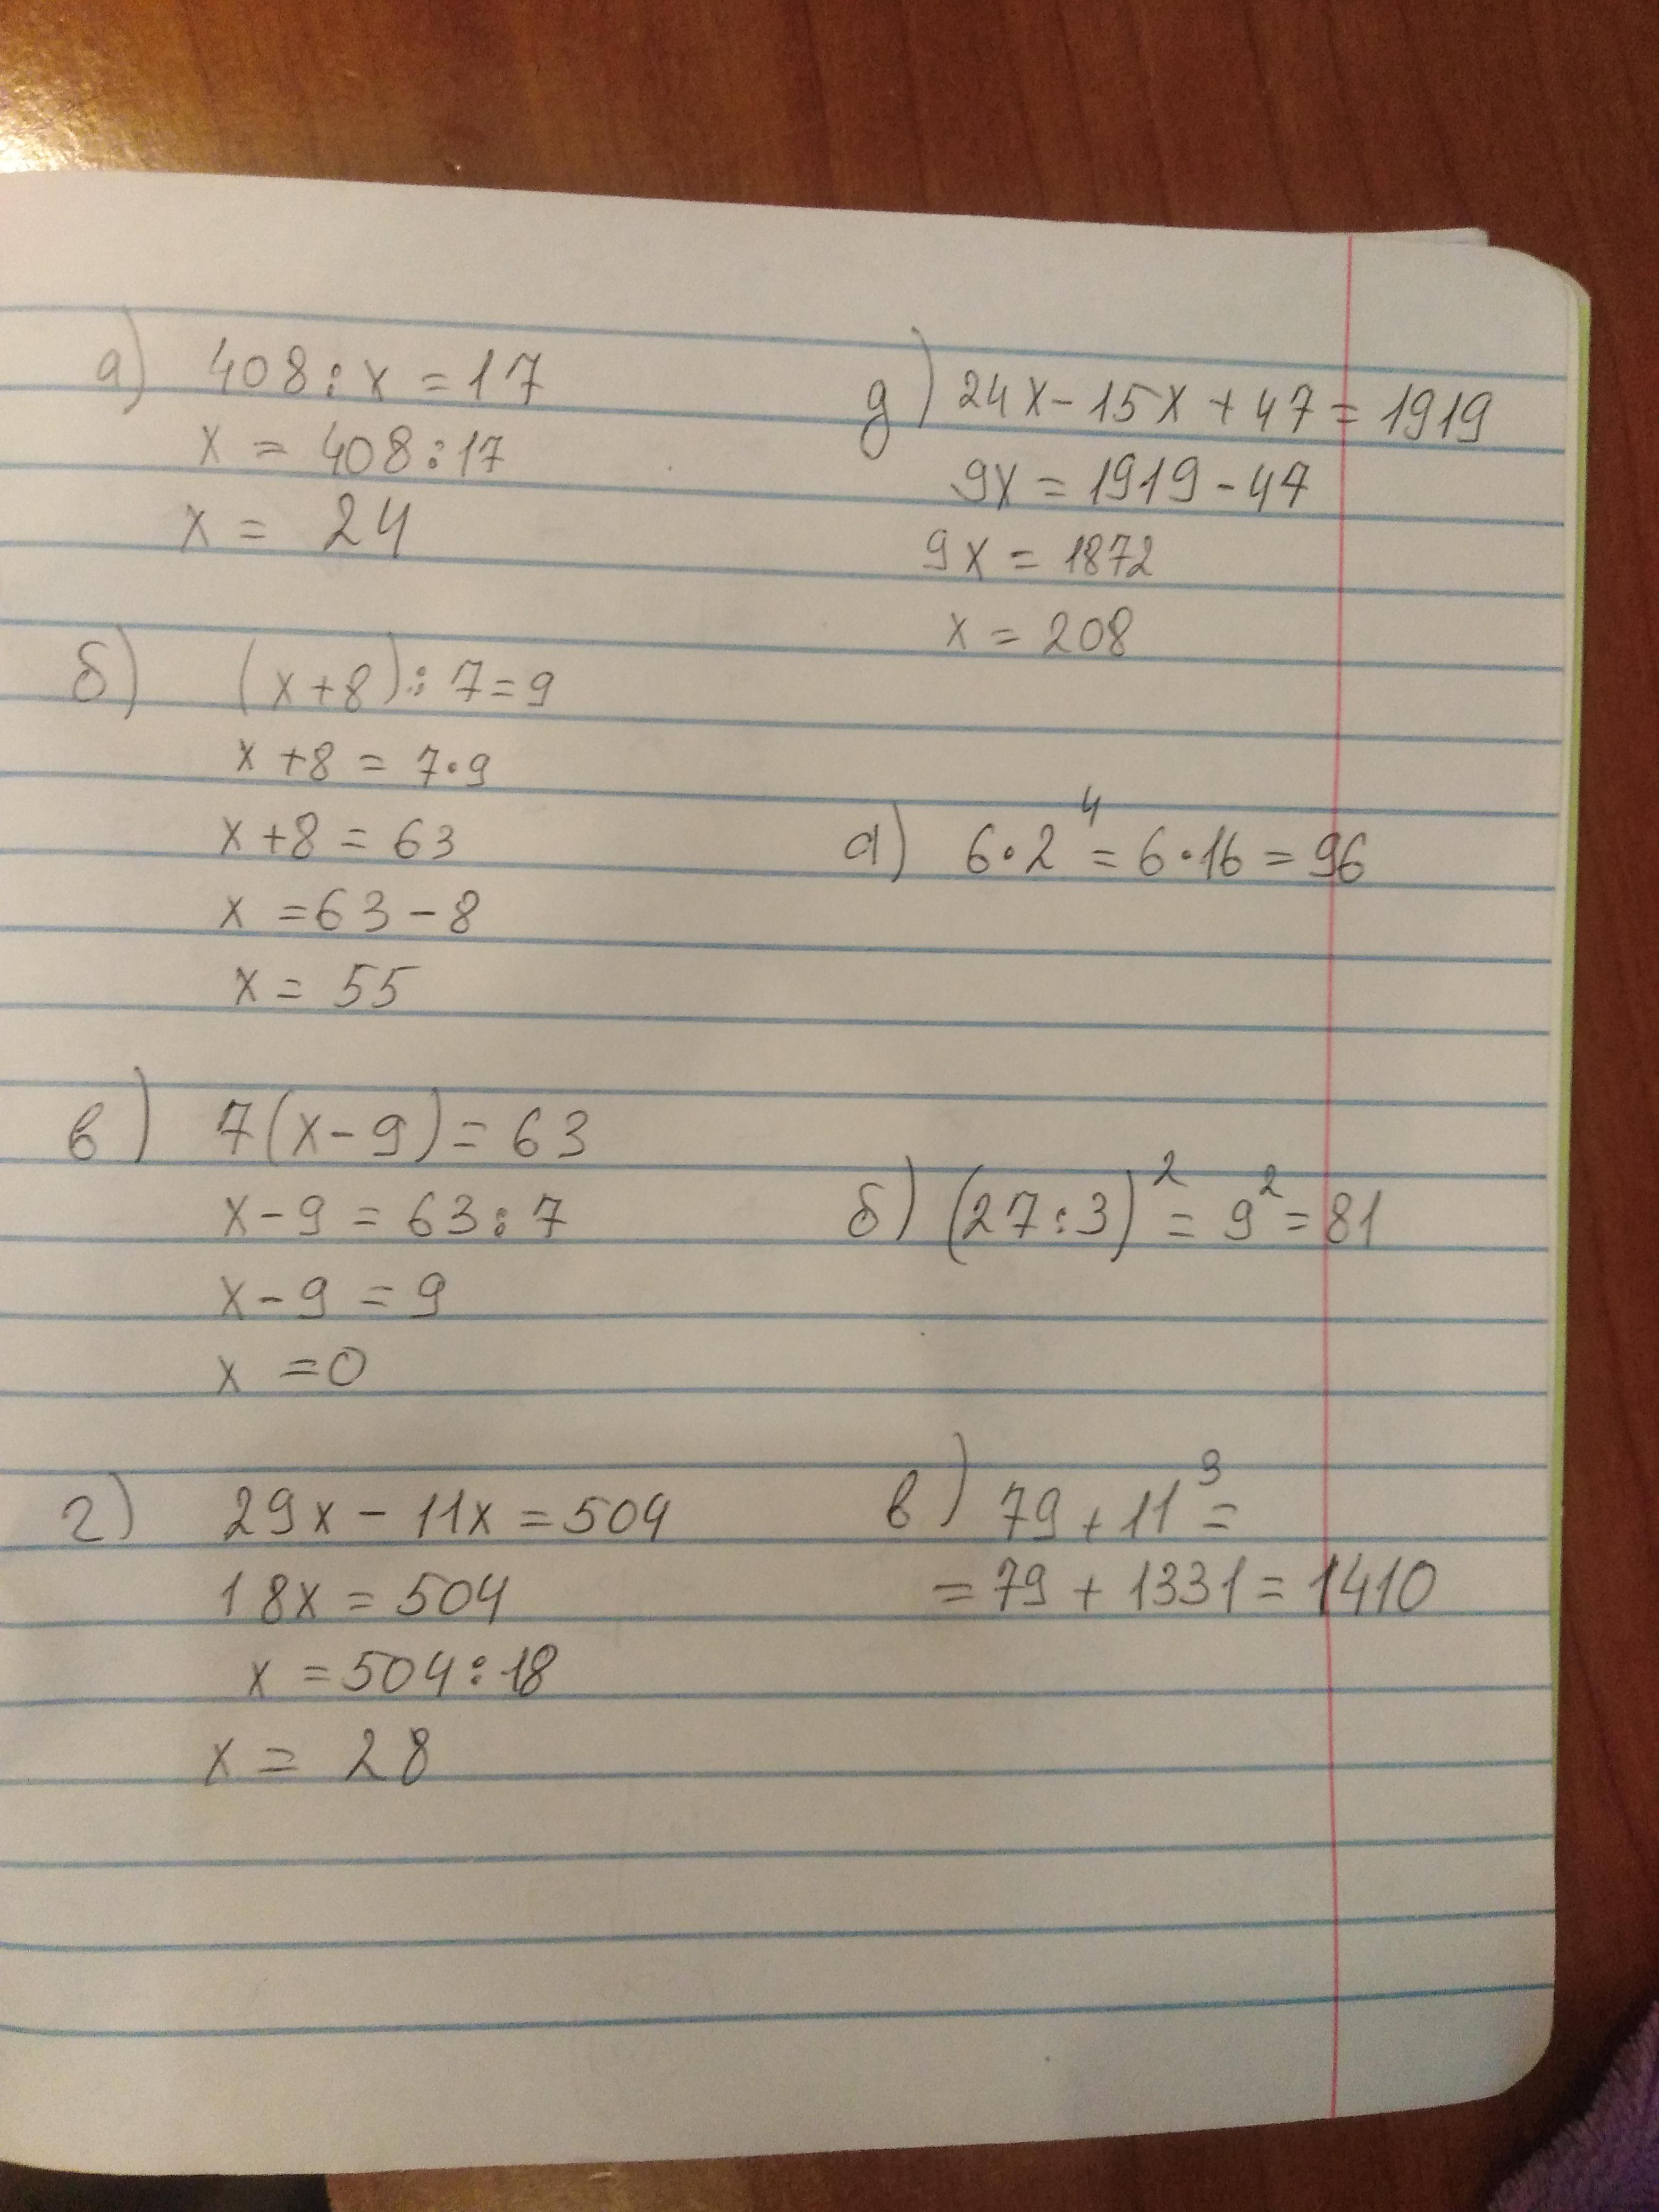 а) 408 : x = 17
x = 408 : 17
x = 24
б) (x+8) : 7 = 9
x + 8 = 7·9
x + 8 = 63
x = 63 - 8
x = 55
в) 7(x - 9) = 63
x - 9 = 63 : 7
x - 9 = 9
x = 0
г) 29x - 11x = 504
18x = 504
x = 504 : 18
x = 28
д) 24x - 15x + 47 = 1919
9x = 1919 - 47
9x = 1872
x = 208
а) 6·2⁴ = 6·16 = 96
б) (27 : 3)² = 9² = 81
в) 79 + 11³ =
= 79 + 1331 = 1410